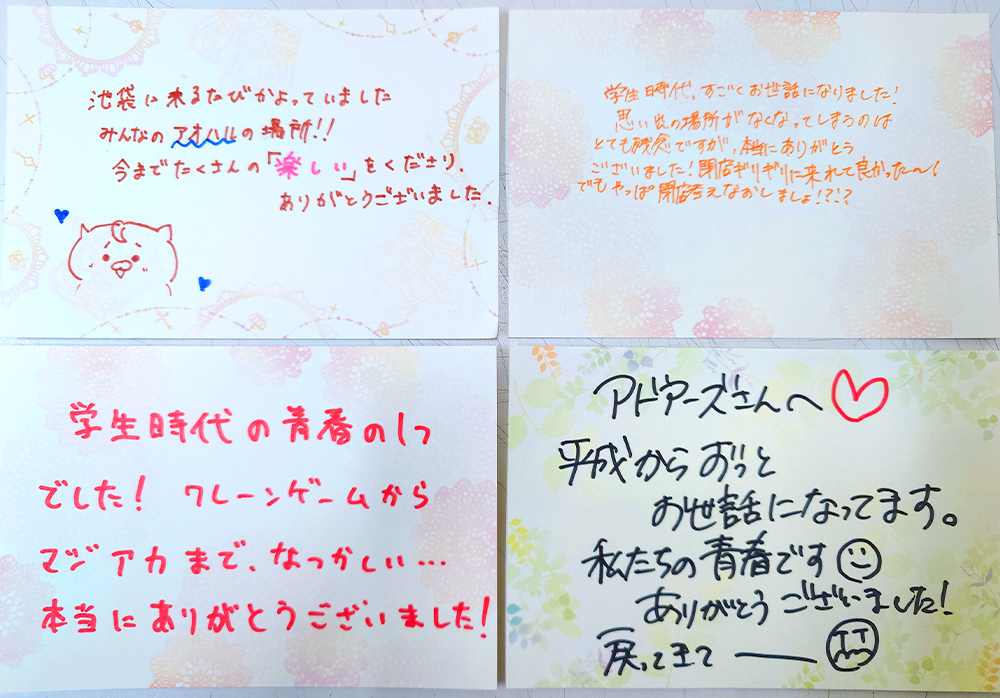 池袋に来るたびかよっていました
みんなのアオハルの場所!!
今までたくさんの「楽しい」をくださり、
ありがとうございました.
学生時代、すごくお世話になりました!
思い出の場所がなくなってしまうのは
とても残念ですが、本当にありがとう
ございました!閉店ギリギリに来れて良かった〜!
でもやっぱ閉店考えなおしましょ!?!?
学生時代の青春の1つ
でした! クレーンゲームから
マジアカまで、なつかしい…
本当にありがとうございました!
アドアーズさんへ♡
平成からずっと
お世話になってます。
私たちの青春です
ありがとうございました!
戻ってきて――